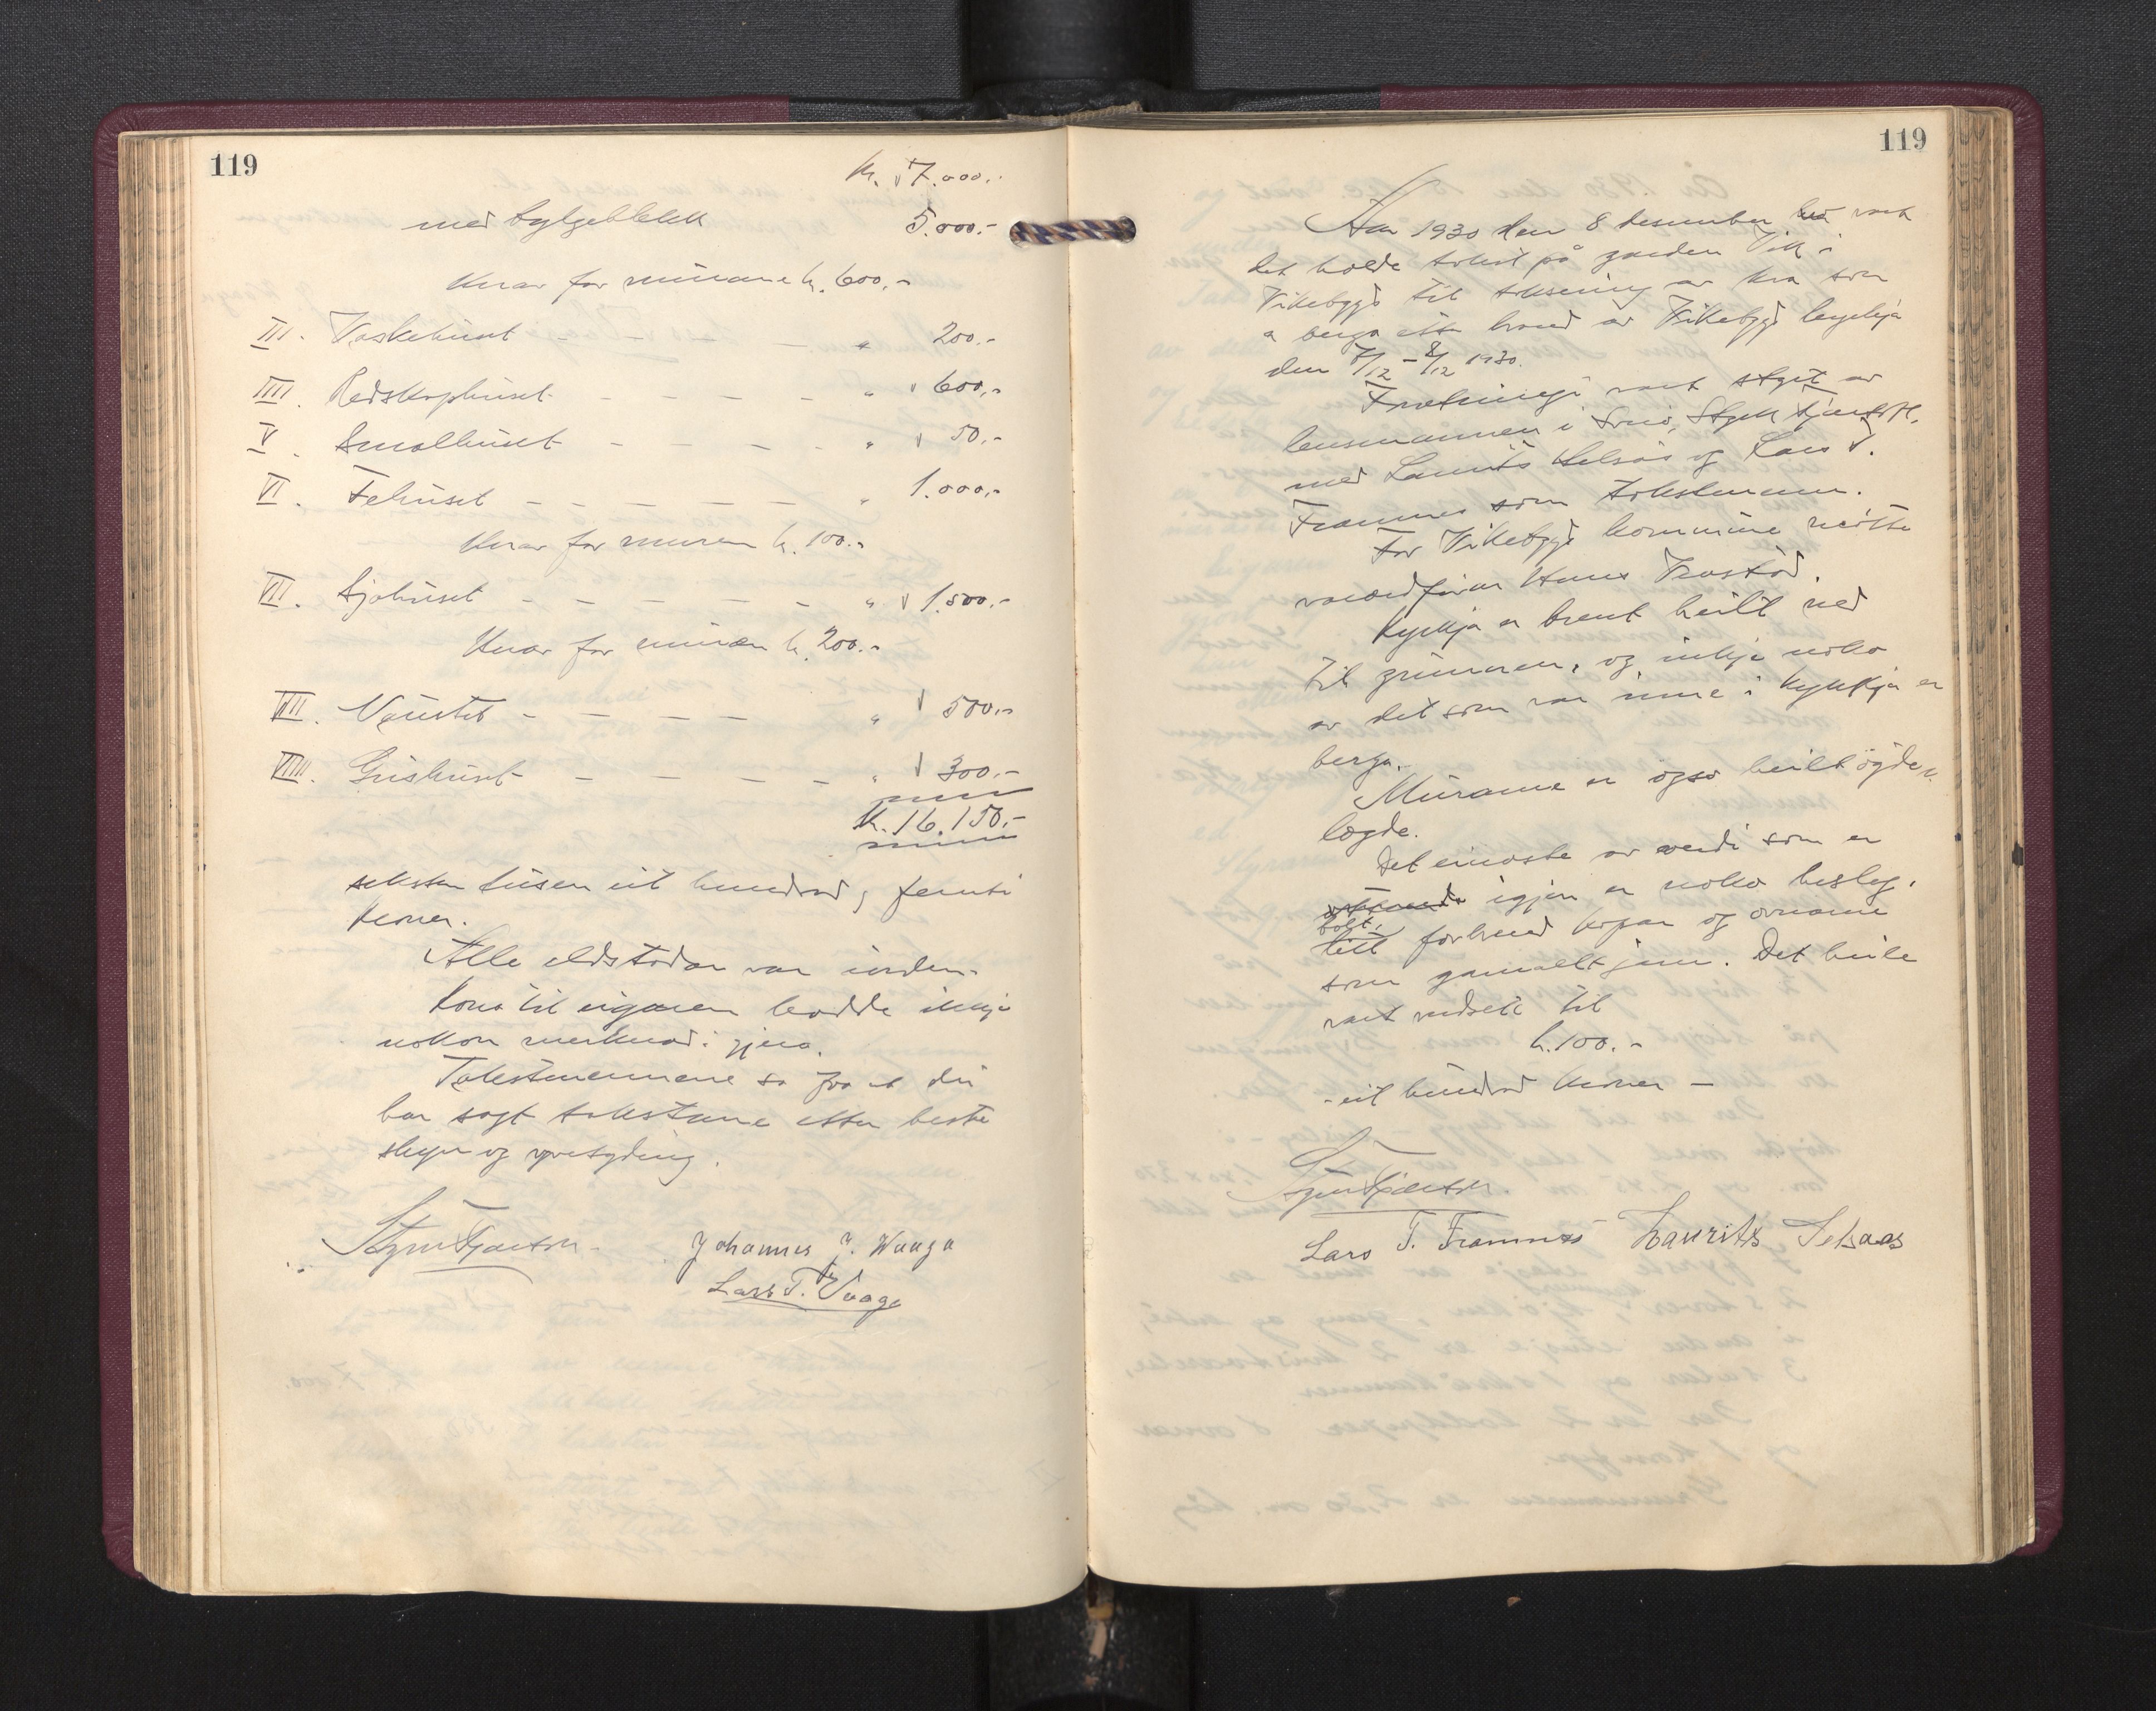 119
kr. 7.000.-
med bylgeblekk 5.000.-
Herav for murane kr. 600.-
III. Vaskehuset - - - " 200.-
IIII. Redskaphuset - - - - " 600.-
V. Smalhuset - - - - " 50.-
VI. Fehuset - - - - - " 1.000.-
Herav for muren kr. 100.-
VII. Sjøhuset - - - - - " 1.500.-
Herav for muren kr. 200.-
VIII. Naustet - - - - " 500.-
VIIII. Grishuset - - - - " 300.-
kr. 16.150.-
seksten tusen eit hundrad og femti
kroner.
Alle eldstadar var i orden.
Kona til eigaren hadde ikkje
nokon merknad i gjera.
Takstmennene sa fra at dei
har sagt takstane etter beste
skyn og
Johannes J. Waaga
Lars T. Vaage
119
Aar 1930 den 8 desember vart
det halde takst på garden Vik i
Vikebygd til taksering av kva som
a berga etter brand av Vikebygd kyrkja
den 7/12 - 8/12 1930.
Forretningi vart styrt av
lensmannen i
med Laurits Selsås og Lars T.
Framnes som takstmenn.
For Vikebygd kommune møtte
varaordførar Hans
Kyrkja er brent heilt ned
til grunnen, og inkje noko
av det som var inne i kyrkja er
berga.
Murane er også heilt øyde-
lagde.
Det einaste av verdi som er
igjen er noko besleg,
bolt,
litt forbrend kopar og ovnane
som gamalt jarn. Det heile
vart verdsett til
kr. 100.-
- eit hundrad kroner -
Lars T. Framnes Laurits Selsaas